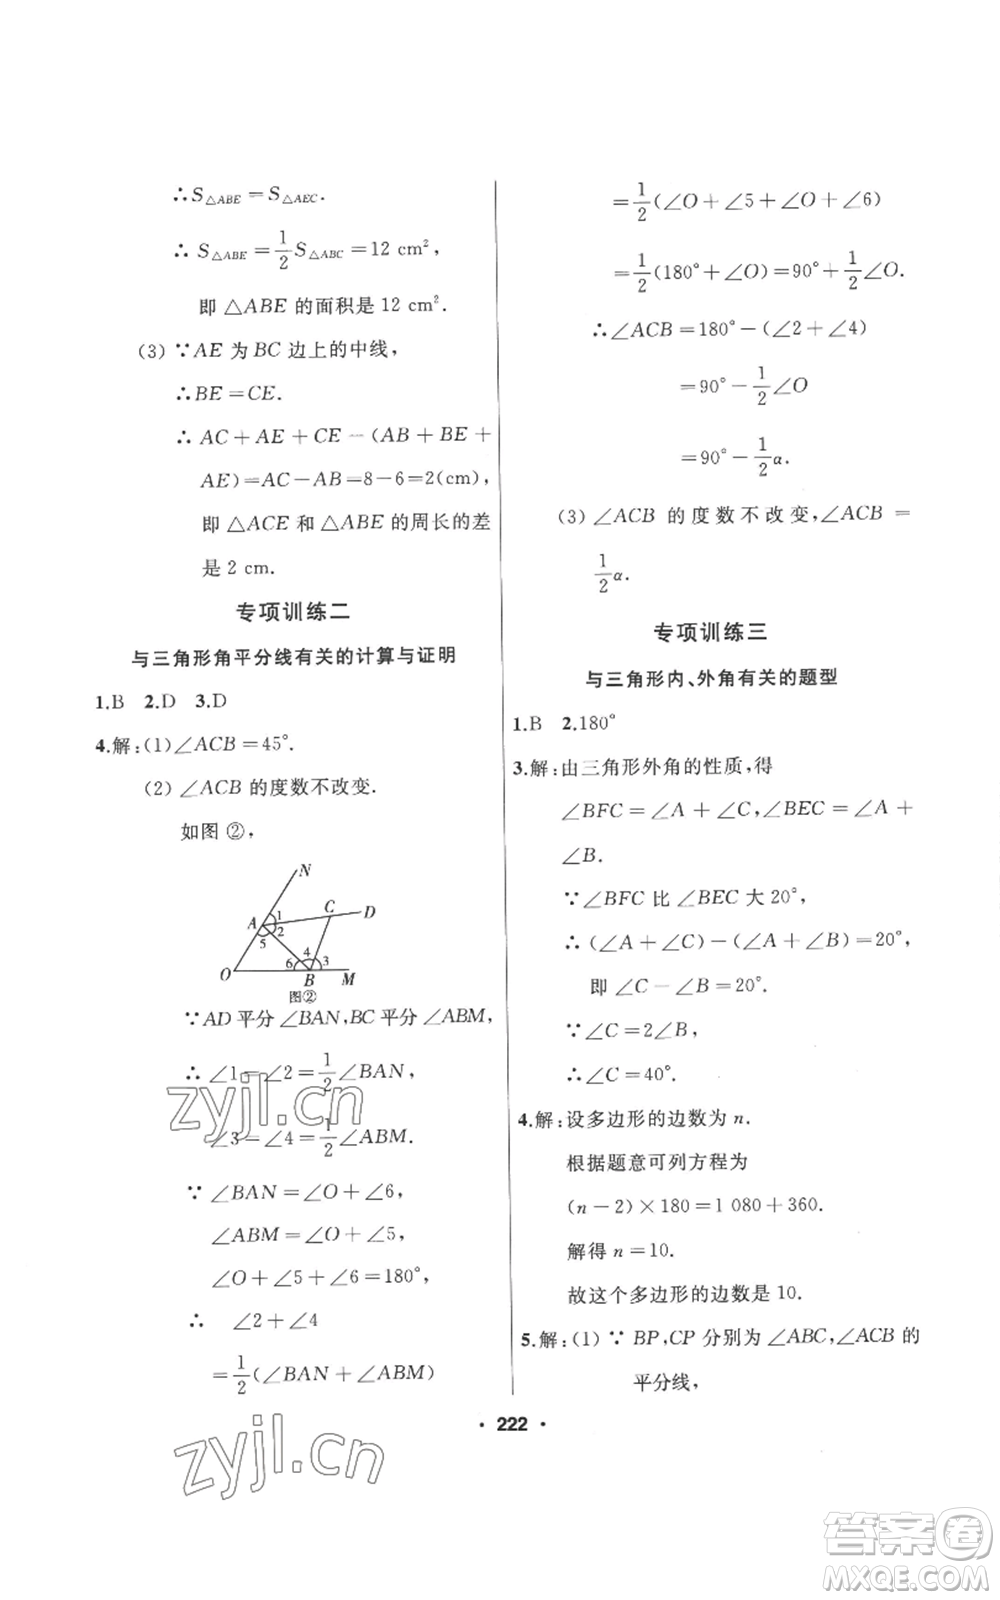 ∴S△ABE＝S△AEC.
∴ S△ABE＝1/2S△ABC＝12 cm²，
即 △ABE 的面积是 12 cm².
(3) ∵AE 为 BC 边上的中线，
∴BE＝CE.
∴ AC＋AE＋CE－(AB＋BE＋
AE)＝AC－AB＝8－6＝2(cm)，
即 △ACE 和 △ABE 的周长的差
是 2 cm.
专项训练二
与三角形角平分线有关的计算与证明
1.B 2.D 3.D
4.解：(1)∠ACB＝45°.
(2) ∠ACB 的度数不改变.
如图②，
N
A 1 C D
2
5
4
6 3
O B M
图②
∵AD 平分∠BAN，BC 平分∠ABM，
∴ ∠1＝∠2＝1/2∠BAN，
∠3＝∠4＝1/2∠ABM.
∵ ∠BAN＝∠O＋∠6，
∠ABM＝∠O＋∠5，
∠O＋∠5＋∠6＝180°，
∴ ∠2＋∠4
＝1/2(∠BAN＋∠ABM)
＝1/2(∠O＋∠5＋∠O＋∠6)
＝1/2(180°＋∠O)＝90°＋1/2∠O.
∴∠ACB＝180°－(∠2＋∠4)
＝90°－1/2∠O
＝90°－1/2α.
(3) ∠ACB 的度数不改变，∠ACB＝
1/2α.
专项训练三
与三角形内、外角有关的题型
1.B 2.180°
3.解：由三角形外角的性质，得
∠BFC＝∠A＋∠C，∠BEC＝∠A＋
∠B.
∵∠BFC 比 ∠BEC 大 20°，
∴(∠A＋∠C)－(∠A＋∠B)＝20°，
即 ∠C－∠B＝20°.
∵∠C＝2∠B，
∴∠C＝40°.
4.解：设多边形的边数为 n.
根据题意可列方程为
(n－2)×180＝1 080＋360.
解得 n＝10.
故这个多边形的边数是 10.
5.解：(1) ∵ BP，CP 分别为∠ABC，∠ACB 的
平分线，
· 222 ·
zyjl.cn
zyjl.cn
答案卷
MXQE.COM